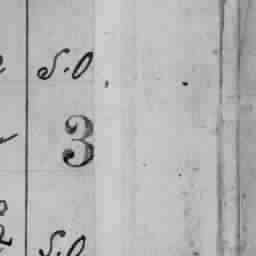 S.O
3
S.O